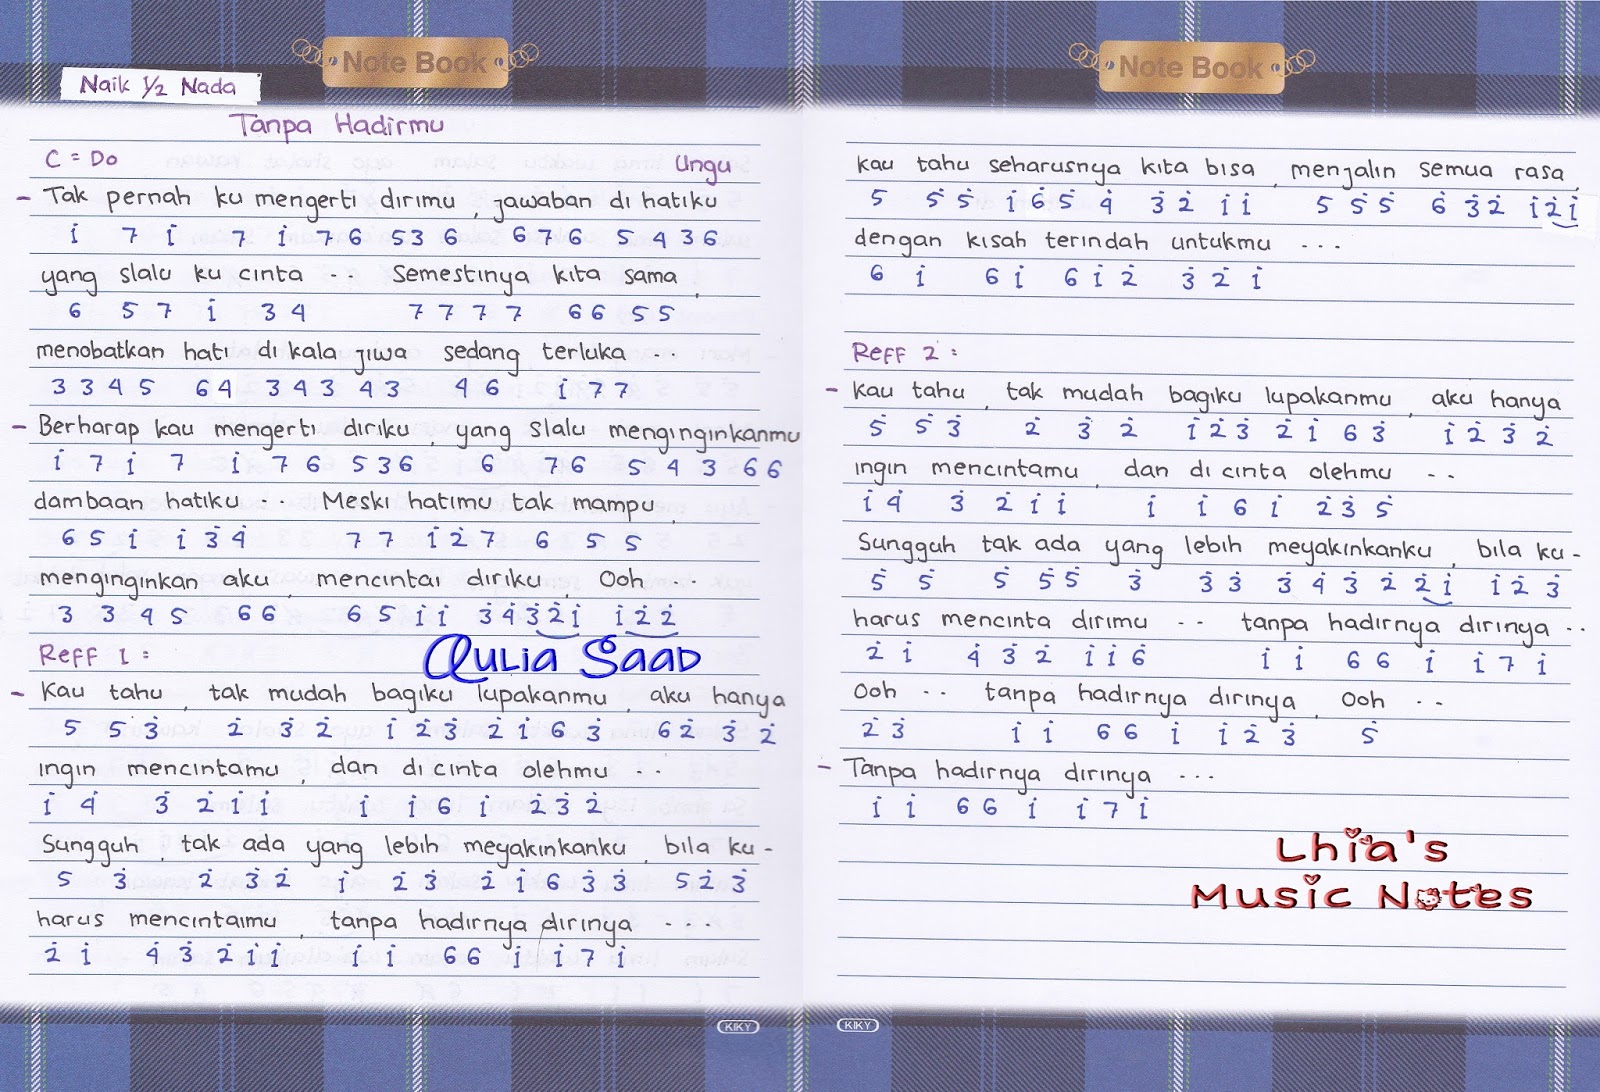 Note Book
Naik 1/2 Nada
Tanpa Hadirmu
C = Do
Ungu
- Tak pernah ku mengerti dirimu , jawaban di hatiku
i̇ 7 i̇ 7 i̇ 7 6 5 3 6 6 7 6 5 4 3 6
yang slalu ku cinta ... Semestinya kita sama ,
6 5 7 i̇ 3 4 7 7 7 7 6 6 5 5
menobatkan hati di kala jiwa sedang terluka ...
3 3 4 5 6 4 3 4 3 4 3 4 6 i̇ 7 7
- Berharap kau mengerti diriku , yang slalu menginginkanmu
i̇ 7 i̇ 7 i̇ 7 6 5 3 6 6 7 6 5 4 3 6 6
dambaan hatiku ... Meski hatimu tak mampu ,
6 5 i̇ i̇ 3̇ 4̇ 7 7 i̇ 2̇ 7 6 5 5
menginginkan aku , mencintai diriku , Ooh ...
3 3 4 5 6 6 6 5 i̇ i̇ 3̇ 4̇ 3̇ 2̇ i̇ i̇ 2̇ 2̇
Reff 1 :
Qulia Saad
- Kau tahu , tak mudah bagiku lupakanmu , aku hanya
5 5 3̇ 2̇ 3̇ 2̇ i̇ 2̇ 3̇ 2̇ i̇ 6 3̇ 6 2̇ 3̇ 2̇
ingin mencintamu , dan di cinta olehmu ...
i̇ 4̇ 3̇ 2̇ i̇ i̇ i̇ i̇ 6 i̇ 2̇ 3̇ 2̇
Sungguh , tak ada yang lebih meyakinkanku , bila ku -
5 3̇ 2̇ 3̇ 2̇ i̇ 2̇ 3̇ 2̇ i̇ 6 3̇ 3̇ 5 2̇ 3̇
harus mencintaimu , tanpa hadirnya dirinya ...
2̇ i̇ 4̇ 3̇ 2̇ i̇ i̇ i̇ i̇ 6 6 i̇ i̇ 7 i̇
KIKY
Note Book
kau tahu seharusnya kita bisa , menjalin semua rasa ,
5 5̇ 5̇ i̇ 6̇ 5̇ 4̇ 3̇ 2̇ i̇ i̇ 5̇ 5̇ 5̇ 6̇ 3̇ 2̇ i̇ 2̇ i̇
dengan kisah terindah untukmu ...
6 i̇ 6 i̇ 6 i̇ 2̇ 3̇ 2̇ i̇
Reff 2 :
- Kau tahu , tak mudah bagiku lupakanmu , aku hanya
5̇ 5̇ 3̇ 2̇ 3̇ 2̇ i̇ 2̇ 3̇ 2̇ i̇ 6 3̇ i̇ 2̇ 3̇ 2̇
ingin mencintamu , dan di cinta olehmu ...
i̇ 4̇ 3̇ 2̇ i̇ i̇ i̇ i̇ 6 i̇ 2̇ 3̇ 5̇
Sungguh tak ada yang lebih meyakinkanku , bila ku -
5̇ 5̇ 5̇ 5̇ 5̇ 3̇ 3̇ 3̇ 3̇ 4̇ 3̇ 2̇ 2̇ i̇ i̇ 2̇ 3̇
harus mencinta dirimu ... tanpa hadirnya dirinya ..
2̇ i̇ 4̇ 3̇ 2̇ i̇ i̇ 6 i̇ i̇ 6 6 i̇ i̇ 7 i̇
Ooh .. tanpa hadirnya dirinya , Ooh ..
2̇ 3̇ i̇ i̇ 6 6 i̇ i̇ 2̇ 3̇ 5̇
- Tanpa hadirnya dirinya ...
i̇ i̇ 6 6 i̇ i̇ 7 i̇
Lhia's
Music Notes
KIKY